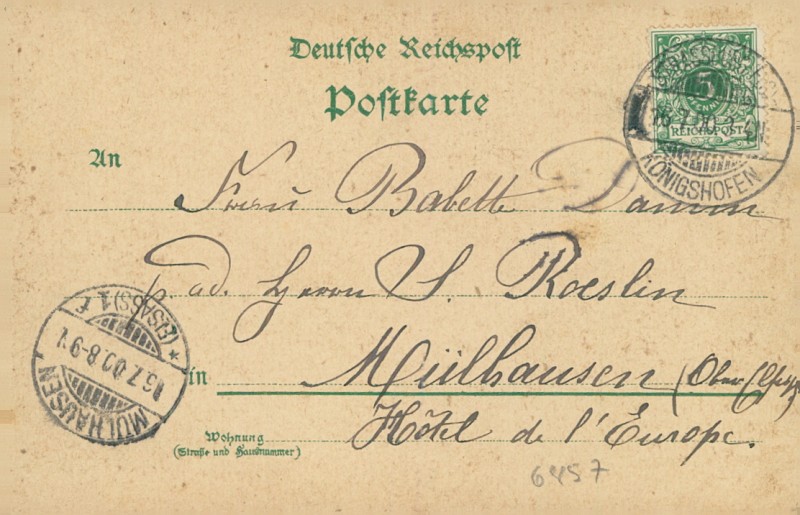 Deutsche Reichspost
Postkarte
5
PFENNIG
REICHSPOST
STRASSBURG
16.7.00.3-4N.
KÖNIGSHOFEN
An
Frau Babette Damm
p. ad. Herrn S. Roeslin
in Mülhausen (Ober Elsass)
Hôtel de l'Europe.
Wohnung
(Straße und Hausnummer)
MÜLHAUSEN
16.7.00.8-9 V.
* (ELSASS) 1 f
6457